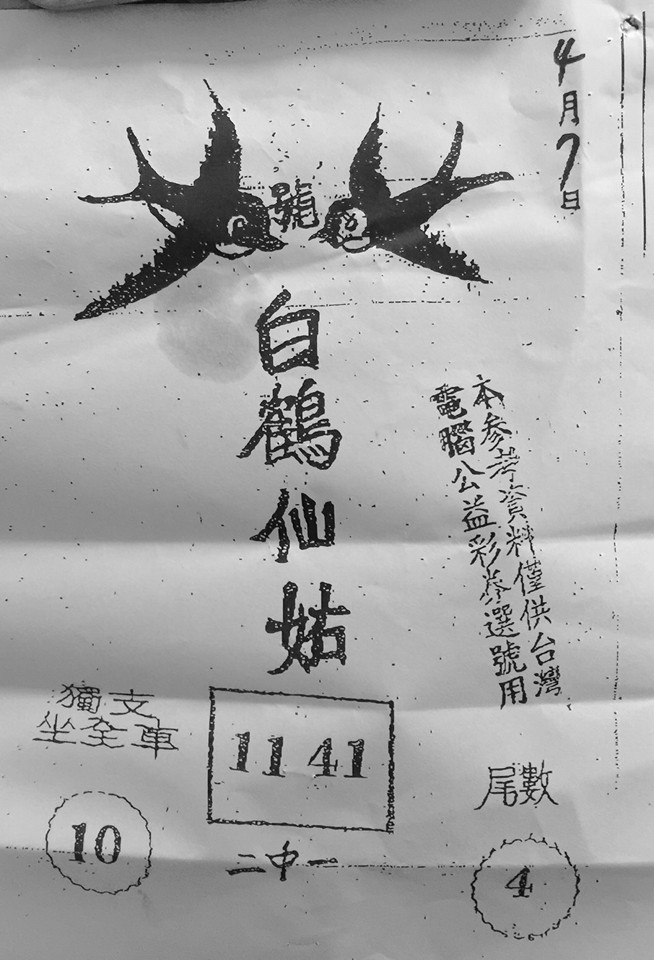 4月7日
號
白鶴仙姑
本参考資料僅供台灣
電腦公益彩券選號用
獨支
坐全車
10
11 41
二中一
尾數
4